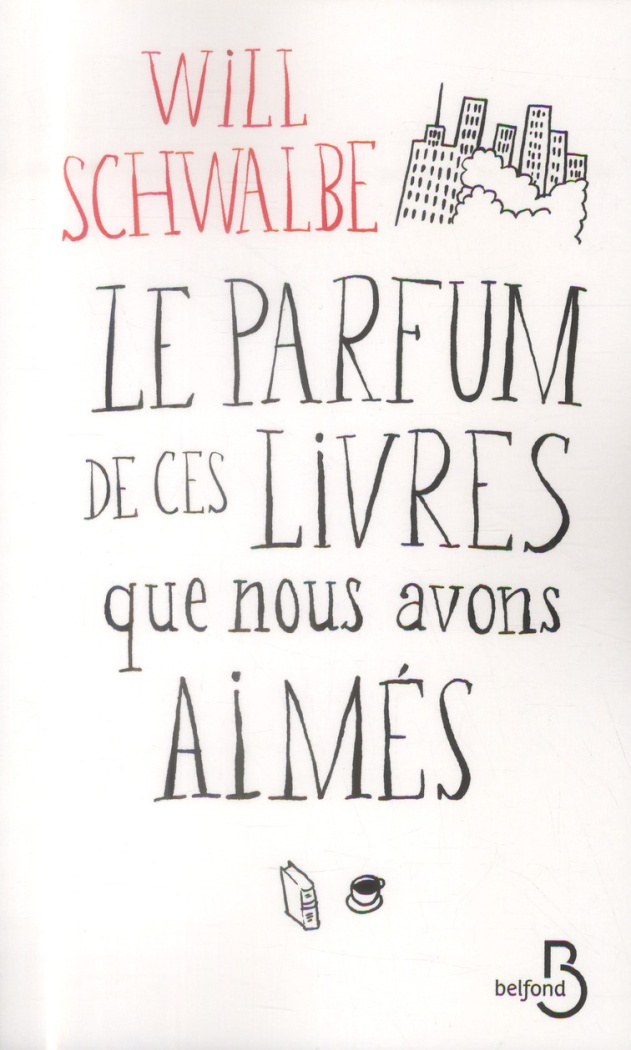 WiLL
SCHWALBE
LE PARFUM
DE CES LiVRES
que nous avons
AiMÉS
B
belfond